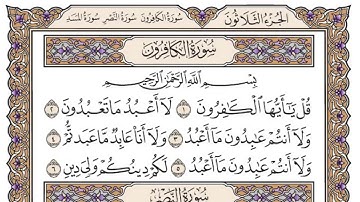 الجزء الثلاثون سورة الكافرون سورة النصر سورة المسد
سُورَةُ الكَافِرُونَ
بِسْمِ اللَّهِ الرَّحْمَٰنِ الرَّحِيمِ
قُلْ يَٰٓأَيُّهَا ٱلْكَٰفِرُونَ ١ لَآ أَعْبُدُ مَا تَعْبُدُونَ ٢
وَلَآ أَنتُمْ عَٰبِدُونَ مَآ أَعْبُدُ ٣ وَلَآ أَنَا۠ عَابِدٌ مَّا عَبَدتُّمْ ٤
وَلَآ أَنتُمْ عَٰبِدُونَ مَآ أَعْبُدُ ٥ لَكُمْ دِينُكُمْ وَلِيَ دِينِ ٦
سُورَةُ النَّصْرِ